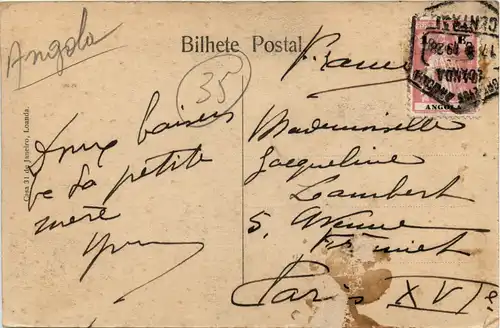 Angola
Bilhete Postal
35
France
LOANDA
ANGOLA
Casa 31 de Janeiro, Loanda.
Doux baisers
de la petite
mère
Mademoiselle
Jacqueline
Lambert
5, Avenue
Frémiet
Paris XVIe